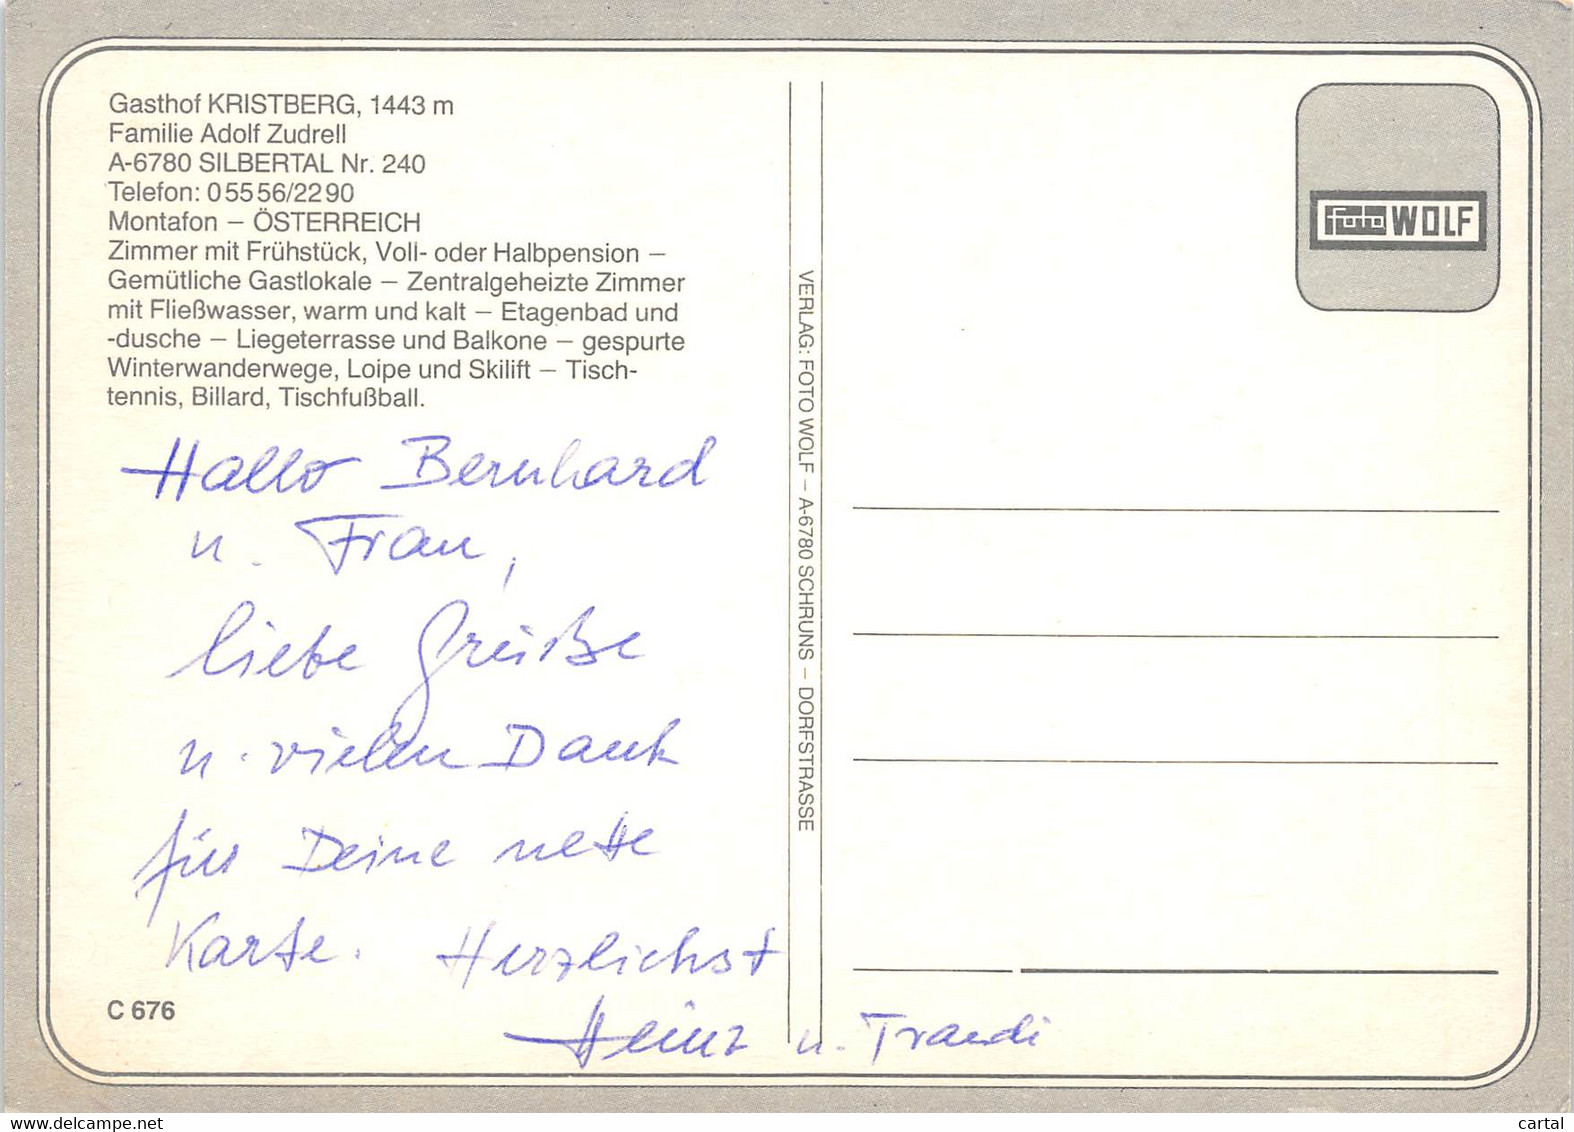 Gasthof KRISTBERG, 1443 m
Familie Adolf Zudrell
A-6780 SILBERTAL Nr. 240
Telefon: 0 55 56/22 90
Montafon – ÖSTERREICH
Zimmer mit Frühstück, Voll- oder Halbpension –
Gemütliche Gastlokale – Zentralgeheizte Zimmer
mit Fließwasser, warm und kalt – Etagenbad und
-dusche – Liegeterrasse und Balkone – gespurte
Winterwanderwege, Loipe und Skilift – Tisch-
tennis, Billard, Tischfußball.
Hallo Bernhard
u. Frau,
liebe Grüße
u. vielen Dank
für Deine nette
Karte. Herzlichst
Heinz u. Traudi
C 676
VERLAG: FOTO WOLF – A-6780 SCHRUNS – DORFSTRASSE
foto WOLF
www.delcampe.net
cartal